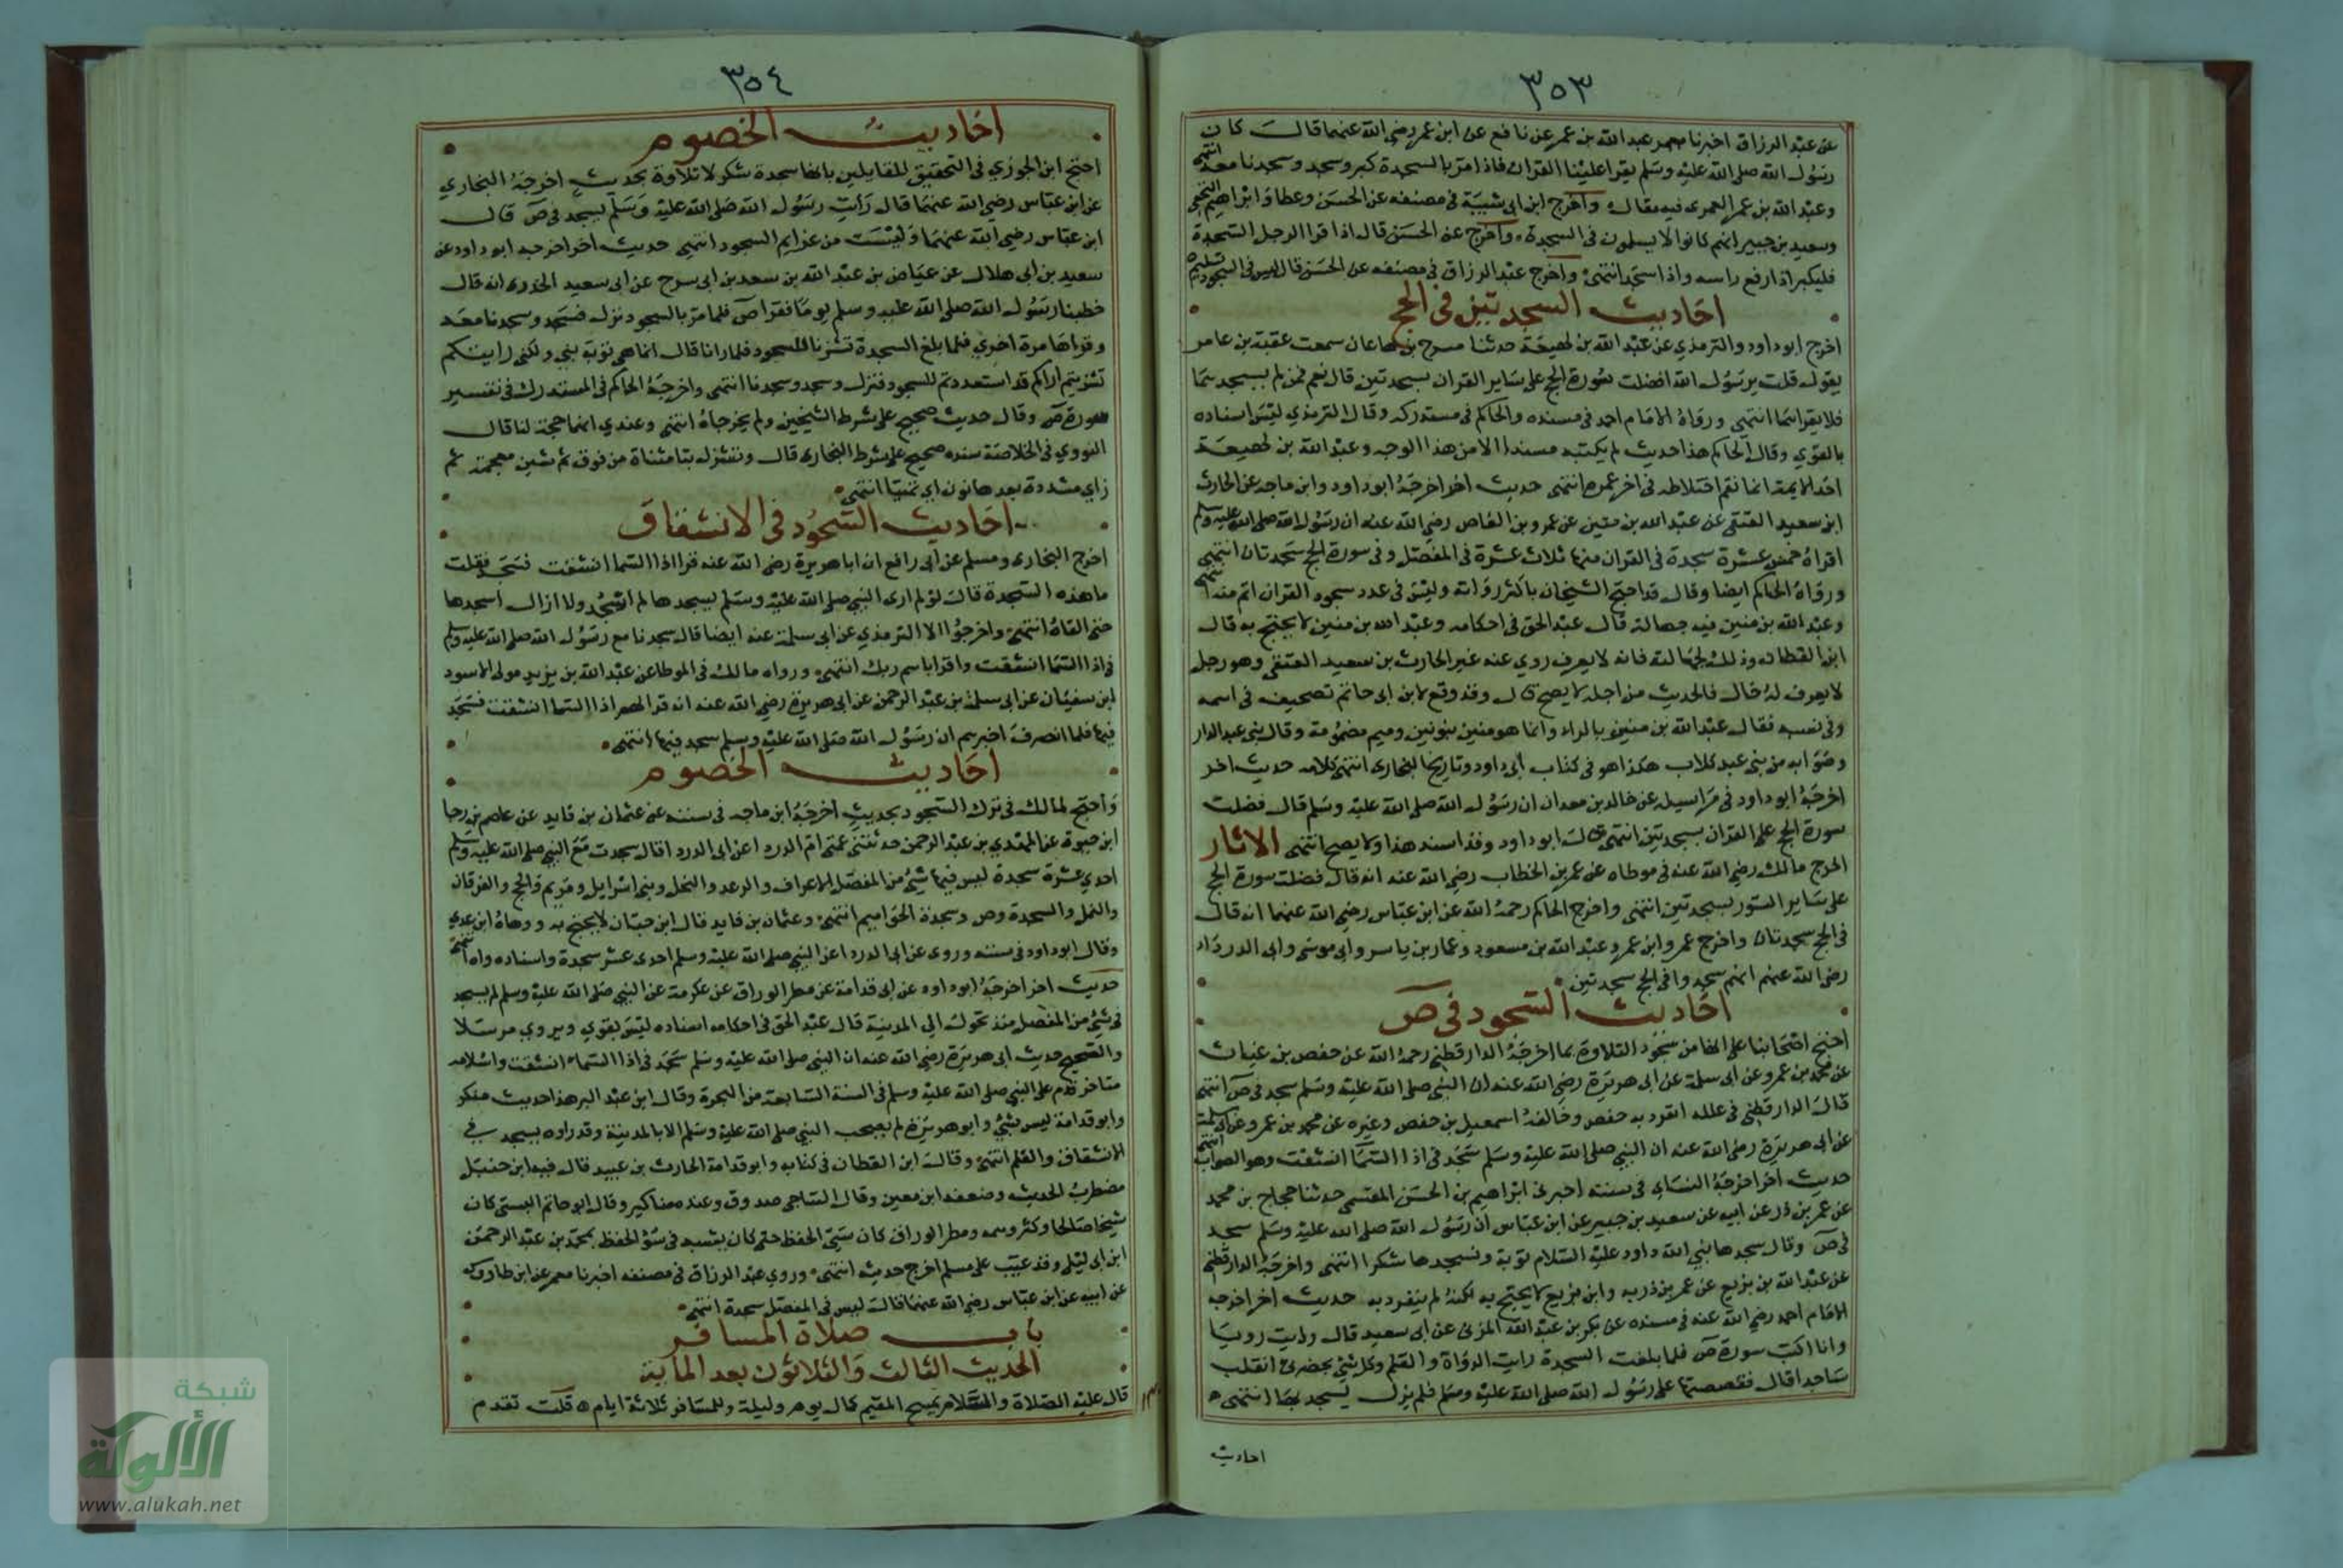 ٣٥٣
عن عبد الرزاق اخبرنا معمر عبد الله بن عمر عن نافع عن ابن عمر رضي الله عنهما قال كان
رسول الله صلى الله عليه وسلم يقرا علينا القران فاذا مر بالسجدة كبر وسجد وسجدنا معه انتهى
وعبد الله بن عمر العمري فيه مقال واخرج ابن ابي شيبة في مصنفه عن الحسن وعطا وابراهيم النخعي
وسعيد بن جبير انهم كانوا لا يسلمون في السجدة واخرج عن الحسن قال اذا قرا الرجل السجدة
فليكبر اذا رفع راسه واذا سجد انتهى واخرج عبد الرزاق في مصنفه عن الحسن قال ليس في السجود تسليم
احاديث السجدتين في الحج
اخرج ابو داود والترمذي عن عبد الله بن لهيعة حدثنا مسرح بن هاعان سمعت عقبة بن عامر
يقول قلت يرسول الله افضلت سورة الحج على ساير القران بسجدتين قال نعم فمن لم يسجدهما
فلا يقراهما انتهى ورواه الامام احمد في مسنده والحاكم في مستدركه وقال الترمذي ليس اسناده
بالقوي وقال الحاكم هذا حديث لم يكتبه مسندا الا من هذا الوجه وعبد الله بن لهيعة
احد الايمة انما نقم اختلاطه في اخر عمره انتهى حديث اخر اخرجه ابو داود وابن ماجه عن الحارث
ابن سعيد العتقي عن عبد الله بن منين عن عمرو بن العاص رضي الله عنه ان رسول الله صلى الله عليه وسلم
اقراه خمس عشرة سجدة في القران منها ثلاث عشرة في المفصل وفي سورة الحج سجدتان انتهى
ورواه الحاكم ايضا وقال قد احتج الشيخان باكثر رواته وليس في عدد سجود القران اتم منه انتهى
وعبد الله بن منين فيه جهالة قال عبد الحق في احكامه وعبد الله بن منين لا يحتج به قال
ابن القطان وذلك لجهالته فانه لا يعرف روي عنه غير الحارث بن سعيد العتقي وهو رجل
لا يعرف له حال فالحديث من اجله لا يصح قال وقد وقع لابن ابي حاتم تصحيف في اسمه
وفي نسبه فقال عبد الله بن منير بالراء وانما هو منين بنونين وميم مضمومة وقال بني عبد الدار
وصوابه من بني عبد كلاب هكذا هو في كتاب ابي داود وتاريخ البخاري انتهى كلامه حديث اخر
اخرجه ابو داود في مراسيله عن خالد بن معدان ان رسول الله صلى الله عليه وسلم قال فضلت
سورة الحج على القران بسجدتين انتهى قال ابو داود وقد اسند هذا ولا يصح انتهى الاثار
اخرج مالك رضي الله عنه في موطاه عن عمر بن الخطاب رضي الله عنه انه قال فضلت سورة الحج
على ساير السور بسجدتين انتهى واخرج الحاكم رحمه الله عن ابن عباس رضي الله عنهما انه قال
في الحج سجدتان واخرج عمر وابن عمر وعبد الله بن مسعود وعمار بن ياسر وابي موسى وابي الدرداء
رضي الله عنهم انهم سجدوا في الحج سجدتين
احاديث السجود في ص
احتج اصحابنا على انها من سجود التلاوة بما اخرجه الدارقطني رحمه الله عن حفص بن غياث
عن محمد بن عمرو عن ابي سلمة عن ابي هريرة رضي الله عنه ان النبي صلى الله عليه وسلم سجد في ص انتهى
قال الدارقطني في علله انفرد به حفص وخالفه اسمعيل بن حفص وغيره عن محمد بن عمرو عن ابي سلمة
عن ابي هريرة رضي الله عنه ان النبي صلى الله عليه وسلم سجد في اذا السما انشقت وهو الصواب انتهى
حديث اخر اخرجه النساي في سننه اخبرني ابراهيم بن الحسن المقسمي حدثنا حجاج بن محمد
عن عمر بن ذر عن ابيه عن سعيد بن جبير عن ابن عباس ان رسول الله صلى الله عليه وسلم سجد
في ص وقال سجدها نبي الله داود عليه السلام توبة ونسجدها شكرا انتهى واخرجه الدارقطني
عن عبد الله بن بزيع عن عمر بن ذر به وابن بزيع لا يحتج به لكنه لم ينفرد به حديث اخر اخرجه
الامام احمد رضي الله عنه في مسنده عن بكر بن عبد الله المزني عن ابي سعيد قال رايت رويا
وانا اكتب سورة ص فلما بلغت السجدة رايت الدواة والقلم وكل شي بحضرتي انقلب
ساجدا قال فقصصتها على رسول الله صلى الله عليه وسلم فلم يزل يسجد بها انتهى
احاديث
٣٥٤
احاديث الخصوم
احتج ابن الجوزي في التحقيق للقايلين بانها سجدة شكر لا تلاوة بحديث اخرجه البخاري
عن ابن عباس رضي الله عنهما قال رايت رسول الله صلى الله عليه وسلم يسجد في ص قال
ابن عباس رضي الله عنهما وليست من عزايم السجود انتهى حديث اخر اخرجه ابو داود عن
سعيد بن ابي هلال عن عياض بن عبد الله بن سعد بن ابي سرح عن ابي سعيد الخدري انه قال
خطبنا رسول الله صلى الله عليه وسلم يوما فقرا ص فلما مر بالسجود نزل فسجد وسجدنا معه
وقراها مرة اخري فلما بلغ السجدة تشزنا للسجود فلما رانا قال انما هي توبة نبي ولكني رايتكم
تشزنتم اراكم قد استعددتم للسجود فنزل وسجد وسجدنا انتهى واخرجه الحاكم في المستدرك في تفسير
سورة ص وقال حديث صحيح على شرط الشيخين ولم يخرجاه انتهى وعندي انها حجة لنا قال
النووي في الخلاصة سنده صحيح على شرط البخاري قال وتشزن بتا مثناة من فوق ثم شين معجمة ثم
زاي مشددة بعدها نون اي تهيأ انتهى
احاديث السجود في الانشقاق
اخرج البخاري ومسلم عن ابي رافع ان ابا هريرة رضي الله عنه قرا اذا السما انشقت فسجد فقلت
ما هذه السجدة قال لو لم ارى النبي صلى الله عليه وسلم يسجدها لم اسجد ولا ازال اسجدها
حتى القاه انتهى واخرجوا الا الترمذي عن ابي سلمة عنه ايضا قال سجدنا مع رسول الله صلى الله عليه وسلم
في اذا السما انشقت واقرا باسم ربك انتهى ورواه مالك في الموطا عن عبد الله بن يزيد مولى الاسود
ابن سفيان عن ابي سلمة بن عبد الرحمن عن ابي هريرة رضي الله عنه انه قرا لهم اذا السما انشقت فسجد
فيها فلما انصرف اخبرهم ان رسول الله صلى الله عليه وسلم سجد فيها انتهى
احاديث الخصوم
واحتج لمالك في ترك السجود بحديث اخرجه ابن ماجه في سننه عن عثمان بن فايد عن عاصم بن رجا
ابن حيوة عن المهدي بن عبد الرحمن حدثتني عمتي ام الدردا عن ابي الدردا قال سجدت مع النبي صلى الله عليه وسلم
احدي عشرة سجدة ليس فيها شي من المفصل الاعراف والرعد والنحل وبني اسرايل ومريم والحج والفرقان
والنمل والسجدة وص وسجدة الحواميم انتهى وعثمان بن فايد قال ابن حبان لا يحتج به ووهاه ابن عدي
وقال ابو داود في سننه وروي عن ابي الدردا عن النبي صلى الله عليه وسلم احدى عشر سجدة واسناده واه انتهى
حديث اخر اخرجه ابو داود عن ابي قدامة عن مطر الوراق عن عكرمة عن النبي صلى الله عليه وسلم لم يسجد
في شي من المفصل منذ تحول الي المدينة قال عبد الحق في احكامه اسناده ليس بقوي ويروي مرسلا
والصحيح حديث ابي هريرة رضي الله عنه ان النبي صلى الله عليه وسلم سجد في اذا السماء انشقت واسلامه
متاخر قدم على النبي صلى الله عليه وسلم في السنة السابعة من الهجرة وقال ابن عبد البر هذا حديث منكر
وابو قدامة ليس بشي وابو هريرة لم يصحب النبي صلى الله عليه وسلم الا بالمدينة وقد راه يسجد في
الانشقاق والقلم انتهى وقال ابن القطان في كتابه وابو قدامة الحارث بن عبيد قال فيه ابن حنبل
مضطرب الحديث وضعفه ابن معين وقال الساجي صدوق وعنده مناكير وقال ابو حاتم البستي كان
شيخا صالحا وكثر وهمه ومطر الوراق كان سيئ الحفظ حتى كان يشبه في سؤ الحفظ بمحمد بن عبد الرحمن
ابن ابي ليلى وقد عيب على مسلم اخرج حديثه انتهى وروي عبد الرزاق في مصنفه اخبرنا معمر عن ابن طاووس
عن ابيه عن ابن عباس رضي الله عنهما قال ليس في المفصل سجدة انتهى
باب صلاة المسافر
الحديث الثالث والثلاثون بعد الماية
قال عليه الصلاة والسلام يمسح المقيم كمال يوم وليلة وللمسافر ثلاثة ايام قلت تقدم
شبكة
الألوكة
www.alukah.net